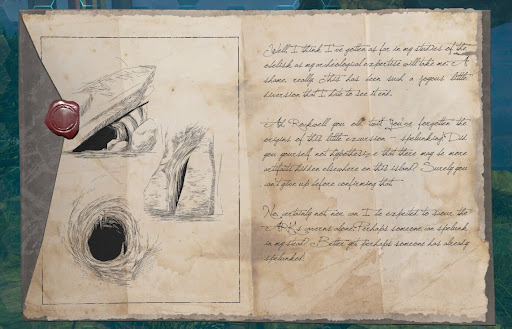 Well, I think I've gotten as far in my studies of the
obelisk as my archeological expertise will take me. A
shame, really. This has been such a joyous little
diversion that I hate to see it end.
Ah Rockwell you old coot! You've forgotten the
origins of this little excursion - spelunking! Did
you yourself not hypothesize that there may be more
artifacts hidden elsewhere on this island? Surely you
can't give up before confirming that.
No, certainly not, nor can I be expected to scour the
ARK's caverns alone. Perhaps someone can spelunk
in my stead? Better yet, perhaps someone has already
spelunked.